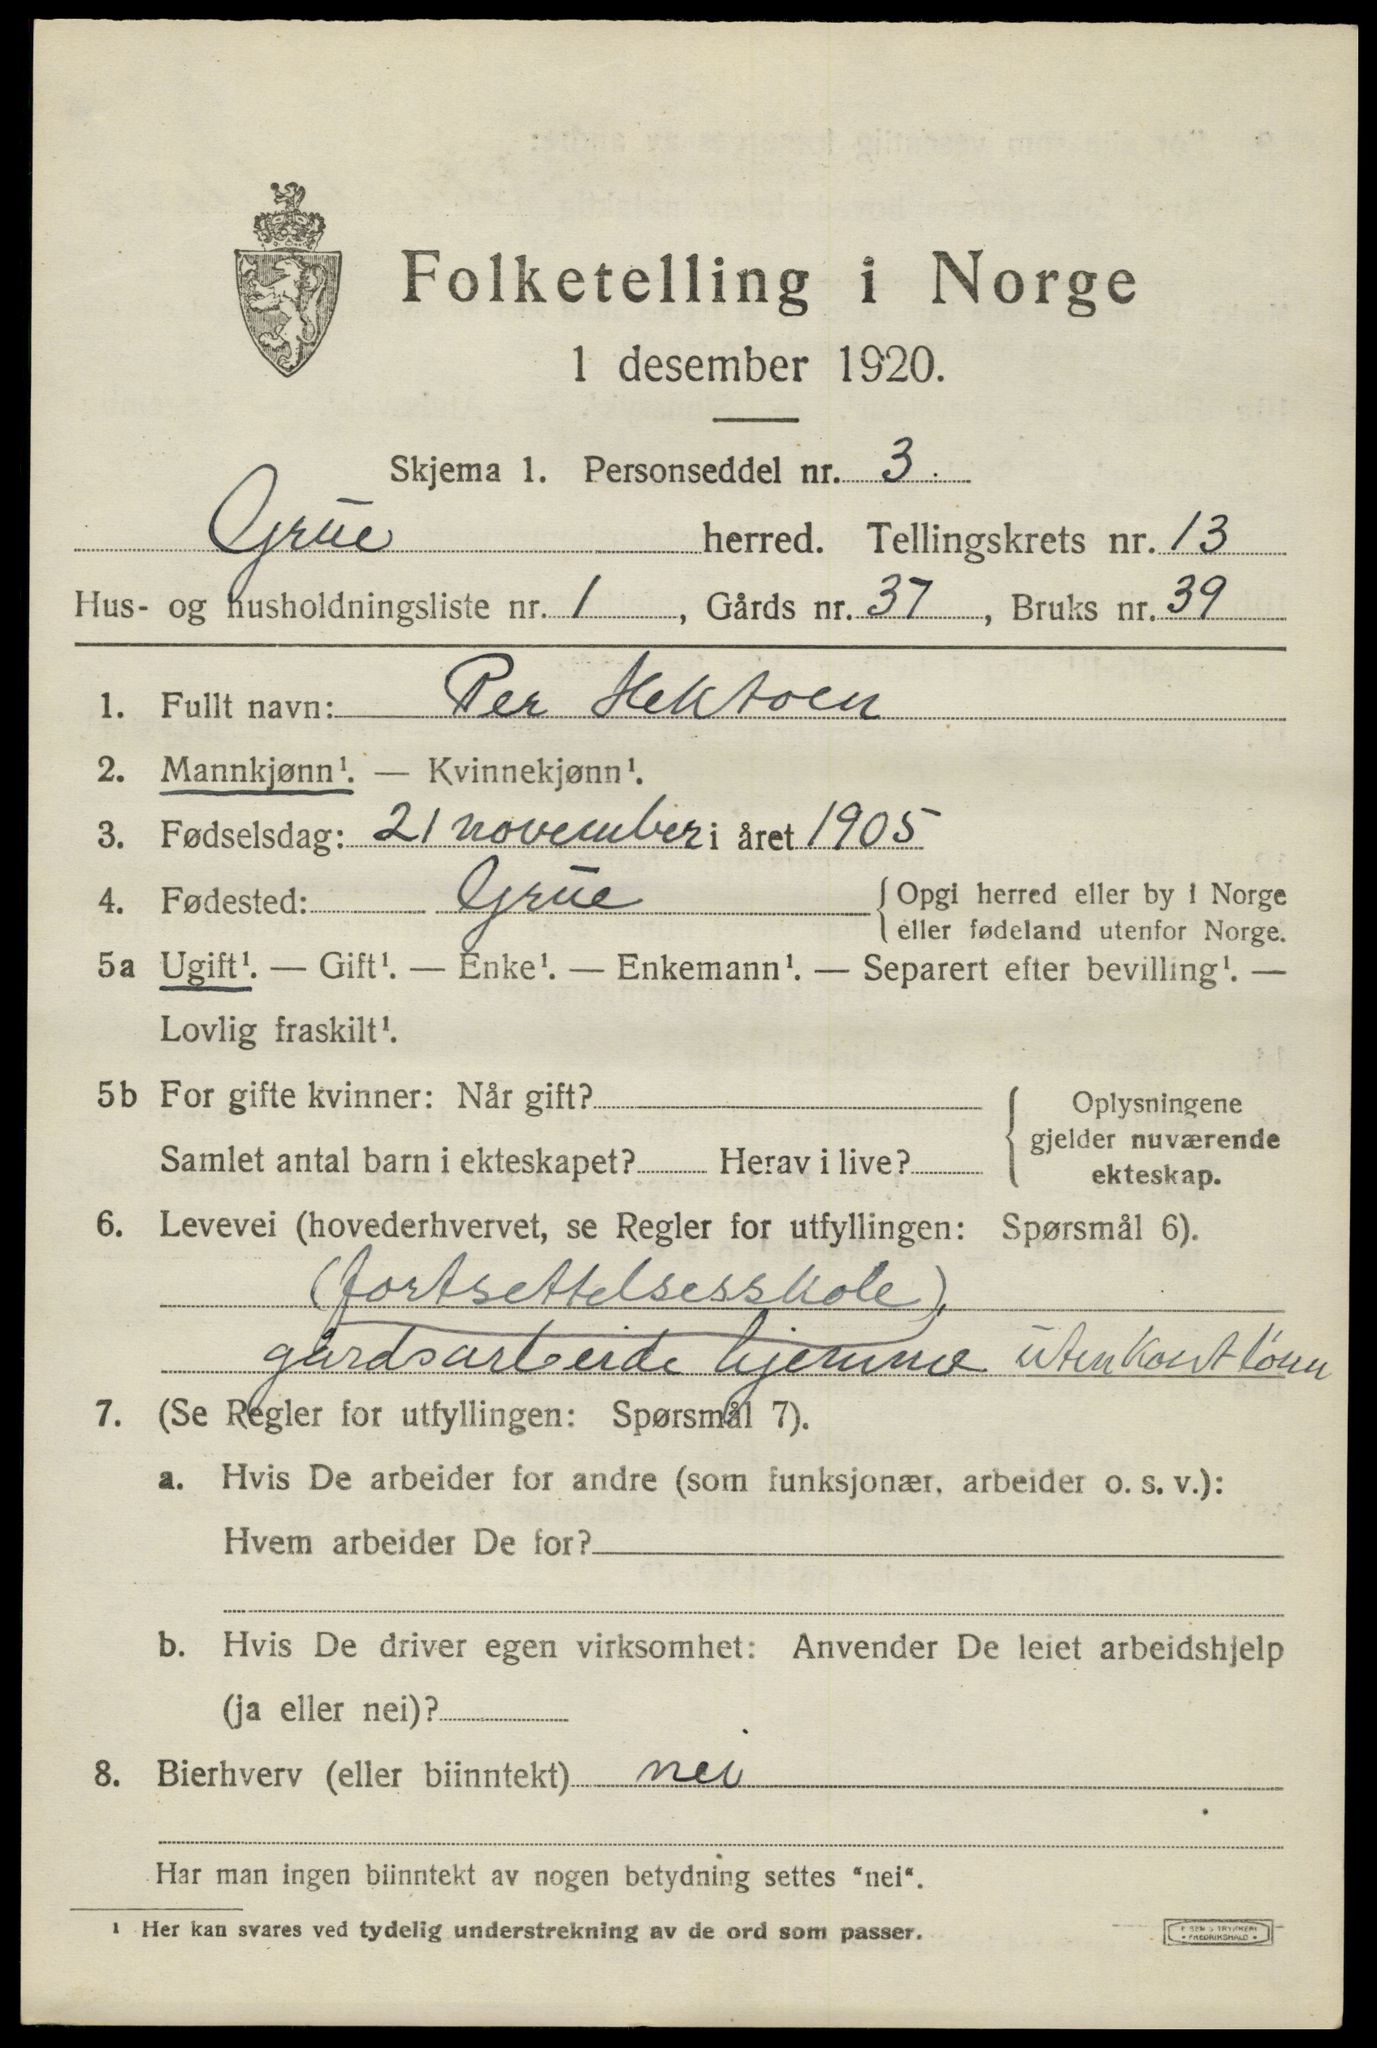 Folketelling i Norge
1 desember 1920.
Skjema 1. Personseddel nr. 3.
Grue herred. Tellingskrets nr. 13
Hus- og husholdningsliste nr. 1, Gårds nr. 37, Bruks nr. 39
1. Fullt navn: Per Hektoen
2. Mannkjønn¹. — Kvinnekjønn¹.
3. Fødselsdag: 21 november i året 1905
4. Fødested: Grue {Opgi herred eller by i Norge
eller fødeland utenfor Norge.
5a Ugift¹. — Gift¹. — Enke¹. — Enkemann¹. — Separert efter bevilling¹. —
Lovlig fraskilt¹.
5b For gifte kvinner: Når gift?
Samlet antal barn i ekteskapet? Herav i live?
{Oplysningene
gjelder nuværende
ekteskap.
6. Levevei (hovederhvervet, se Regler for utfyllingen: Spørsmål 6).
(fortsettelsesskole),
gårdsarbeide hjemme uten kont lønn
7. (Se Regler for utfyllingen: Spørsmål 7).
a. Hvis De arbeider for andre (som funksjonær, arbeider o. s. v.):
Hvem arbeider De for?
b. Hvis De driver egen virksomhet: Anvender De leiet arbeidshjelp
(ja eller nei)?
8. Bierhverv (eller biinntekt) nei
Har man ingen biinntekt av nogen betydning settes "nei".
¹ Her kan svares ved tydelig understrekning av de ord som passer.
FREDRIKSHALD